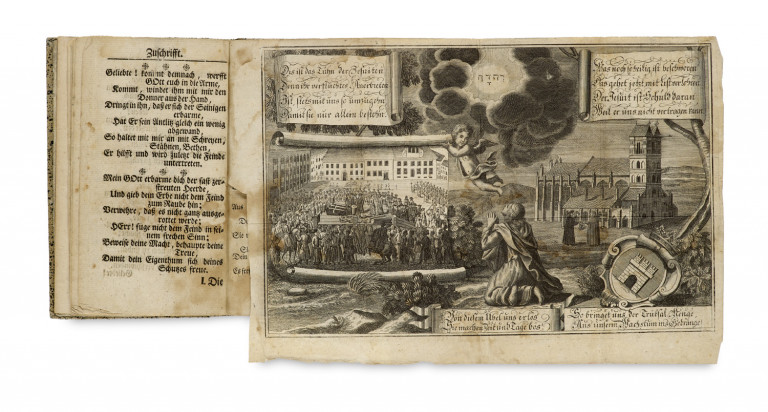 Zuschrifft.
Geliebte! kommt demnach, werfft
GOtt euch in die Arme,
Kommt, windet ihm mit mir den
Donner aus der Hand,
Dringt in ihn, daß er sich der Seinigen
erbarme,
Hat Er sein Antlitz gleich ein wenig
abgewand,
So haltet mit mir an mit Schreyen,
Stöhnen, Bethen,
Er hilfft und wird zuletzt die Feinde
untertreten.
Mein GOtt erbarme dich der fast zer-
streuten Heerde,
Und gieb dein Erbe nicht dem Feind
zum Raube hin;
Verwehre, daß es nicht gantz ausge-
rottet werde;
HErr! füge nicht dem Feind in sei-
nem frechen Sinn;
Beweise deine Macht, behaupte deine
Treue,
Damit dein Eigenthum sich deines
Schutzes freue.
I. Die
Aus
Sie
Dem
Es
Dis ist das Tuhn der Jesuiten
Denn ihr verfluchtes
Ist, stets mit uns so umzugehn
Damit sie nur allein bestehn.
יהוה
Was noch so heilig ist beschworen
Das gehet jetzt mit List verlohren
Der Jesuit ist Schuld daran
Weil er uns nicht vertragen kann
Von diesem Übel uns erlös
Sie machen Zeit und Tage bös
So bringet uns der Trübsal Menge
Aus unserm Wachstum ins Gedränge